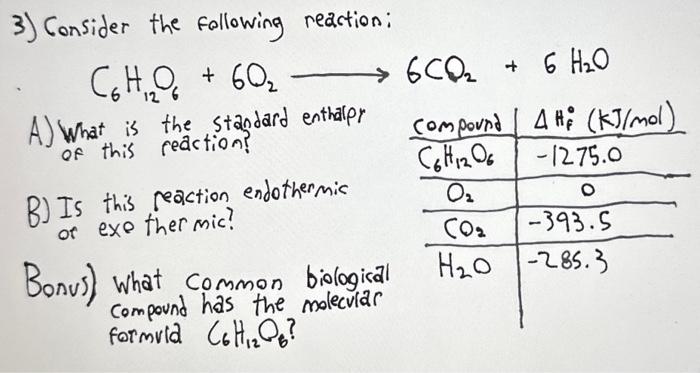 3) Consider the following reaction:
C₆H₁₂O₆ + 6O₂ ⟶ 6CO₂ + 6 H₂O
A) What is the standard enthalpy
of this reaction?
B) Is this reaction endothermic
or exothermic?
Bonus) What common biological
compound has the molecular
formula C₆H₁₂O₆?
compound | ΔH°f (KJ/mol)
C₆H₁₂O₆ | -1275.0
O₂ | 0
CO₂ | -393.5
H₂O | -285.3